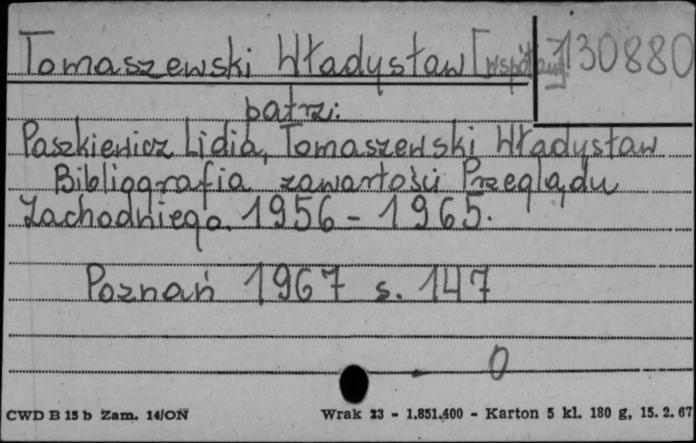 Tomaszewski Władysław [współaut] 130880
patrz:
Paszkiewicz Lidia, Tomaszewski Władysław
Bibliografia zawartości Przeglądu
Zachodniego. 1956 - 1965.
Poznań 1967 s. 147
0
CWD B 15 b Zam. 14/ON Wrak 23 - 1.851.400 - Karton 5 kl. 180 g, 15. 2. 67